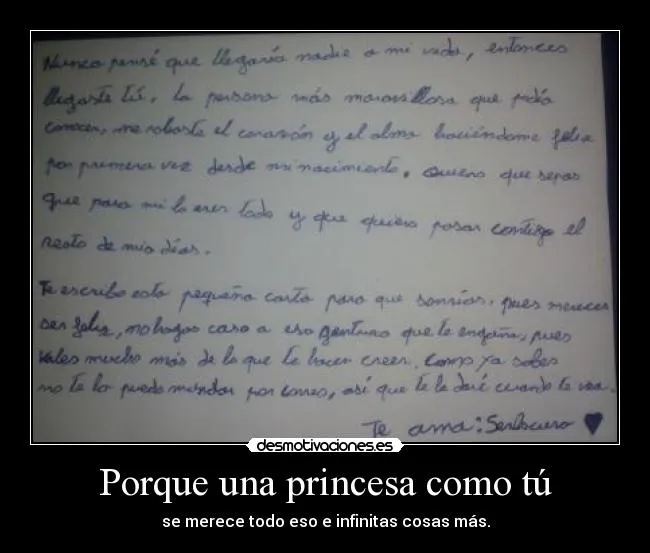 Nunca pensé que llegaría nadie a mi vida, entonces
llegaste tú, la persona más maravillosa que podía
conocer, me robaste el corazón y el alma haciéndome feliz
por primera vez desde mi nacimiento. Quiero que sepas
que para mi lo eres todo y que quiero pasar contigo el
resto de mis días.
Te escribo esta pequeña carta para que sonrías, pues mereces
ser feliz, no hagas caso a esa gentuza que te engaña, pues
vales mucho más de lo que te hacen creer. Como ya sabes
no te la puedo mandar por correo, así que te la daré cuando te vea.
Te ama:
desmotivaciones.es
Porque una princesa como tú
se merece todo eso e infinitas cosas más.